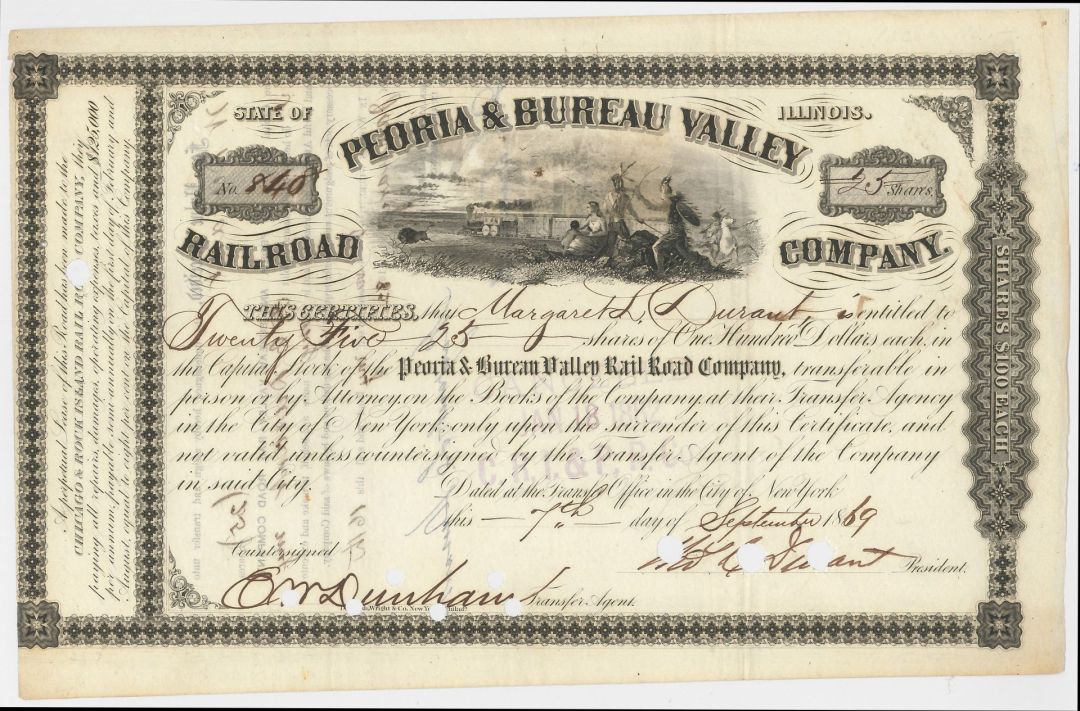 STATE OF ILLINOIS.
PEORIA & BUREAU VALLEY
RAILROAD COMPANY.
No. 848
25 Shares.
THIS CERTIFIES, that Margaret L. Durant is entitled to
Twenty Five 25 shares of One Hundred Dollars each, in
the Capital Stock of the Peoria & Bureau Valley Rail Road Company, transferable in
person or by Attorney, on the Books of the Company, at their Transfer Agency
in the City of New York, only upon the surrender of this Certificate, and
not valid unless countersigned by the Transfer Agent of the Company
in said City.
Dated at the Transfer Office in the City of New York
this 7th day of September 1869
Countersigned
President.
E W Dunham Transfer Agent.
Wright & Co. New York
JAN 18
C. R. I. & P. R.
SHARES $100 EACH
A perpetual Lease of this Road has been made to the
CHICAGO & ROCK ISLAND RAIL ROAD COMPANY, they
paying all repairs, damages, operating expenses, taxes and $125,000
per annum, payable semi-annually on the first day of February and
August, equal to eight per cent on the Capital of this Company.